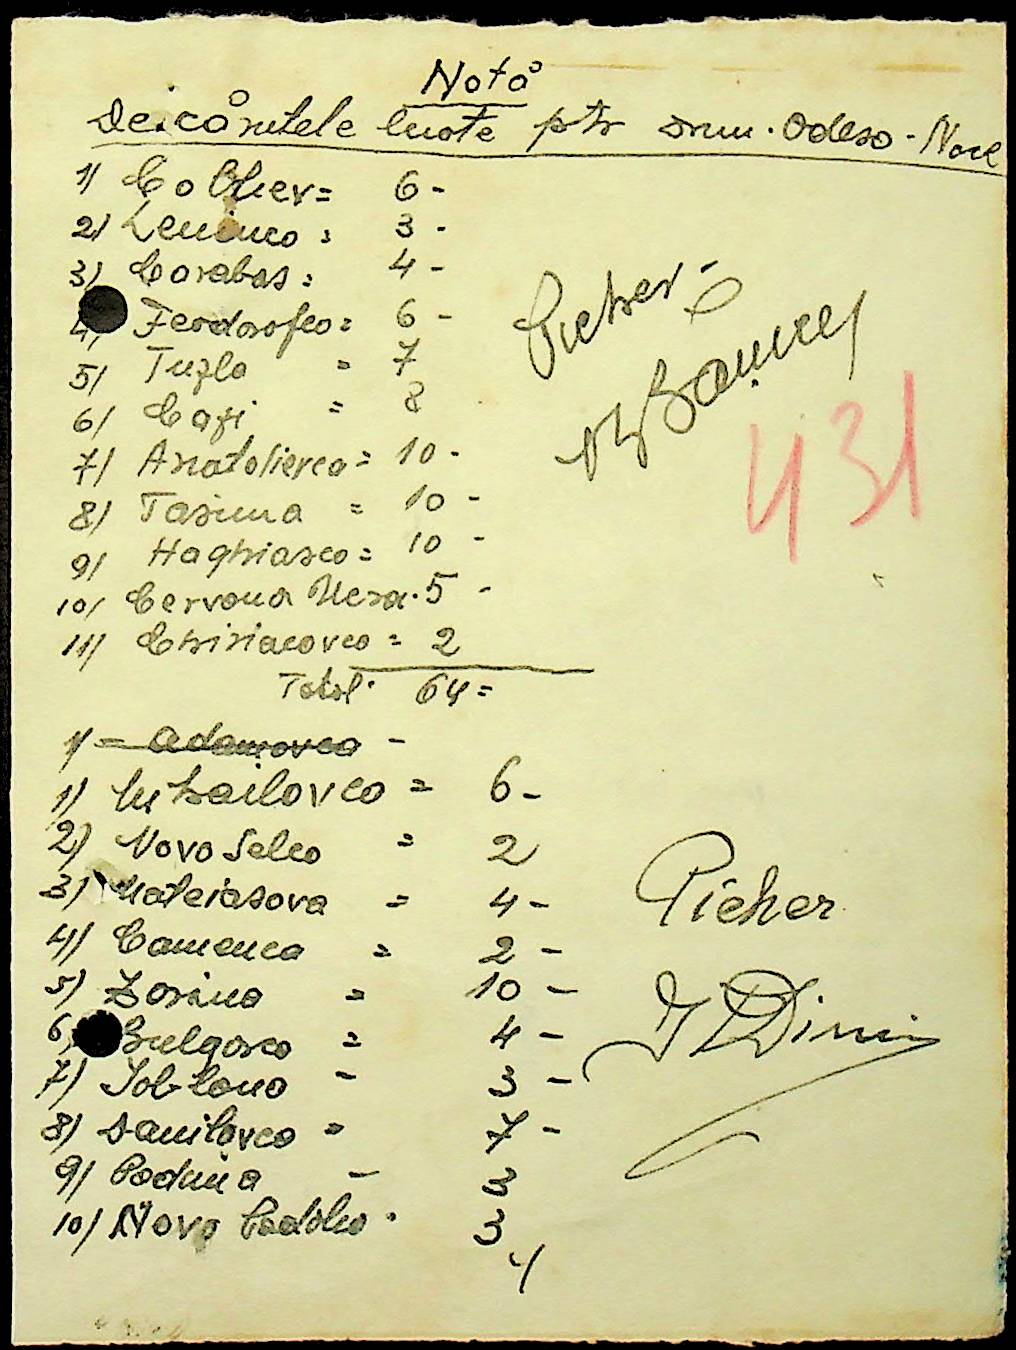 Notă
De căruțele luate ptr drum. Odesa - Nove
1/ Co Bler = 6 -
2/ Leninco = 3 -
3/ Carabas = 4 -
4/ Feodorofco = 6 -
5/ Tuzla = 7
6/ Cazi = 8
7/ Anatolievca = 10 -
8/ Tasuna = 10 -
9/ Haghiasco = 10 -
10/ Cervona Ucra. 5 -
11/ Chiriacovco = 2
Total. 64 =
1/ = Adamovca -
1/ Mihailovco = 6 -
2/ Novo Selco = 2
3/ Mateiasova = 4 -
4/ Camenca = 2 -
5/ Zorino = 10 -
6/ Bulgarco = 4 -
7/ - 3 -
8/ Danilovco = 7 -
9/ Podina - 3
10/ Novo . 3
Picher -
431
Picher
Dinu